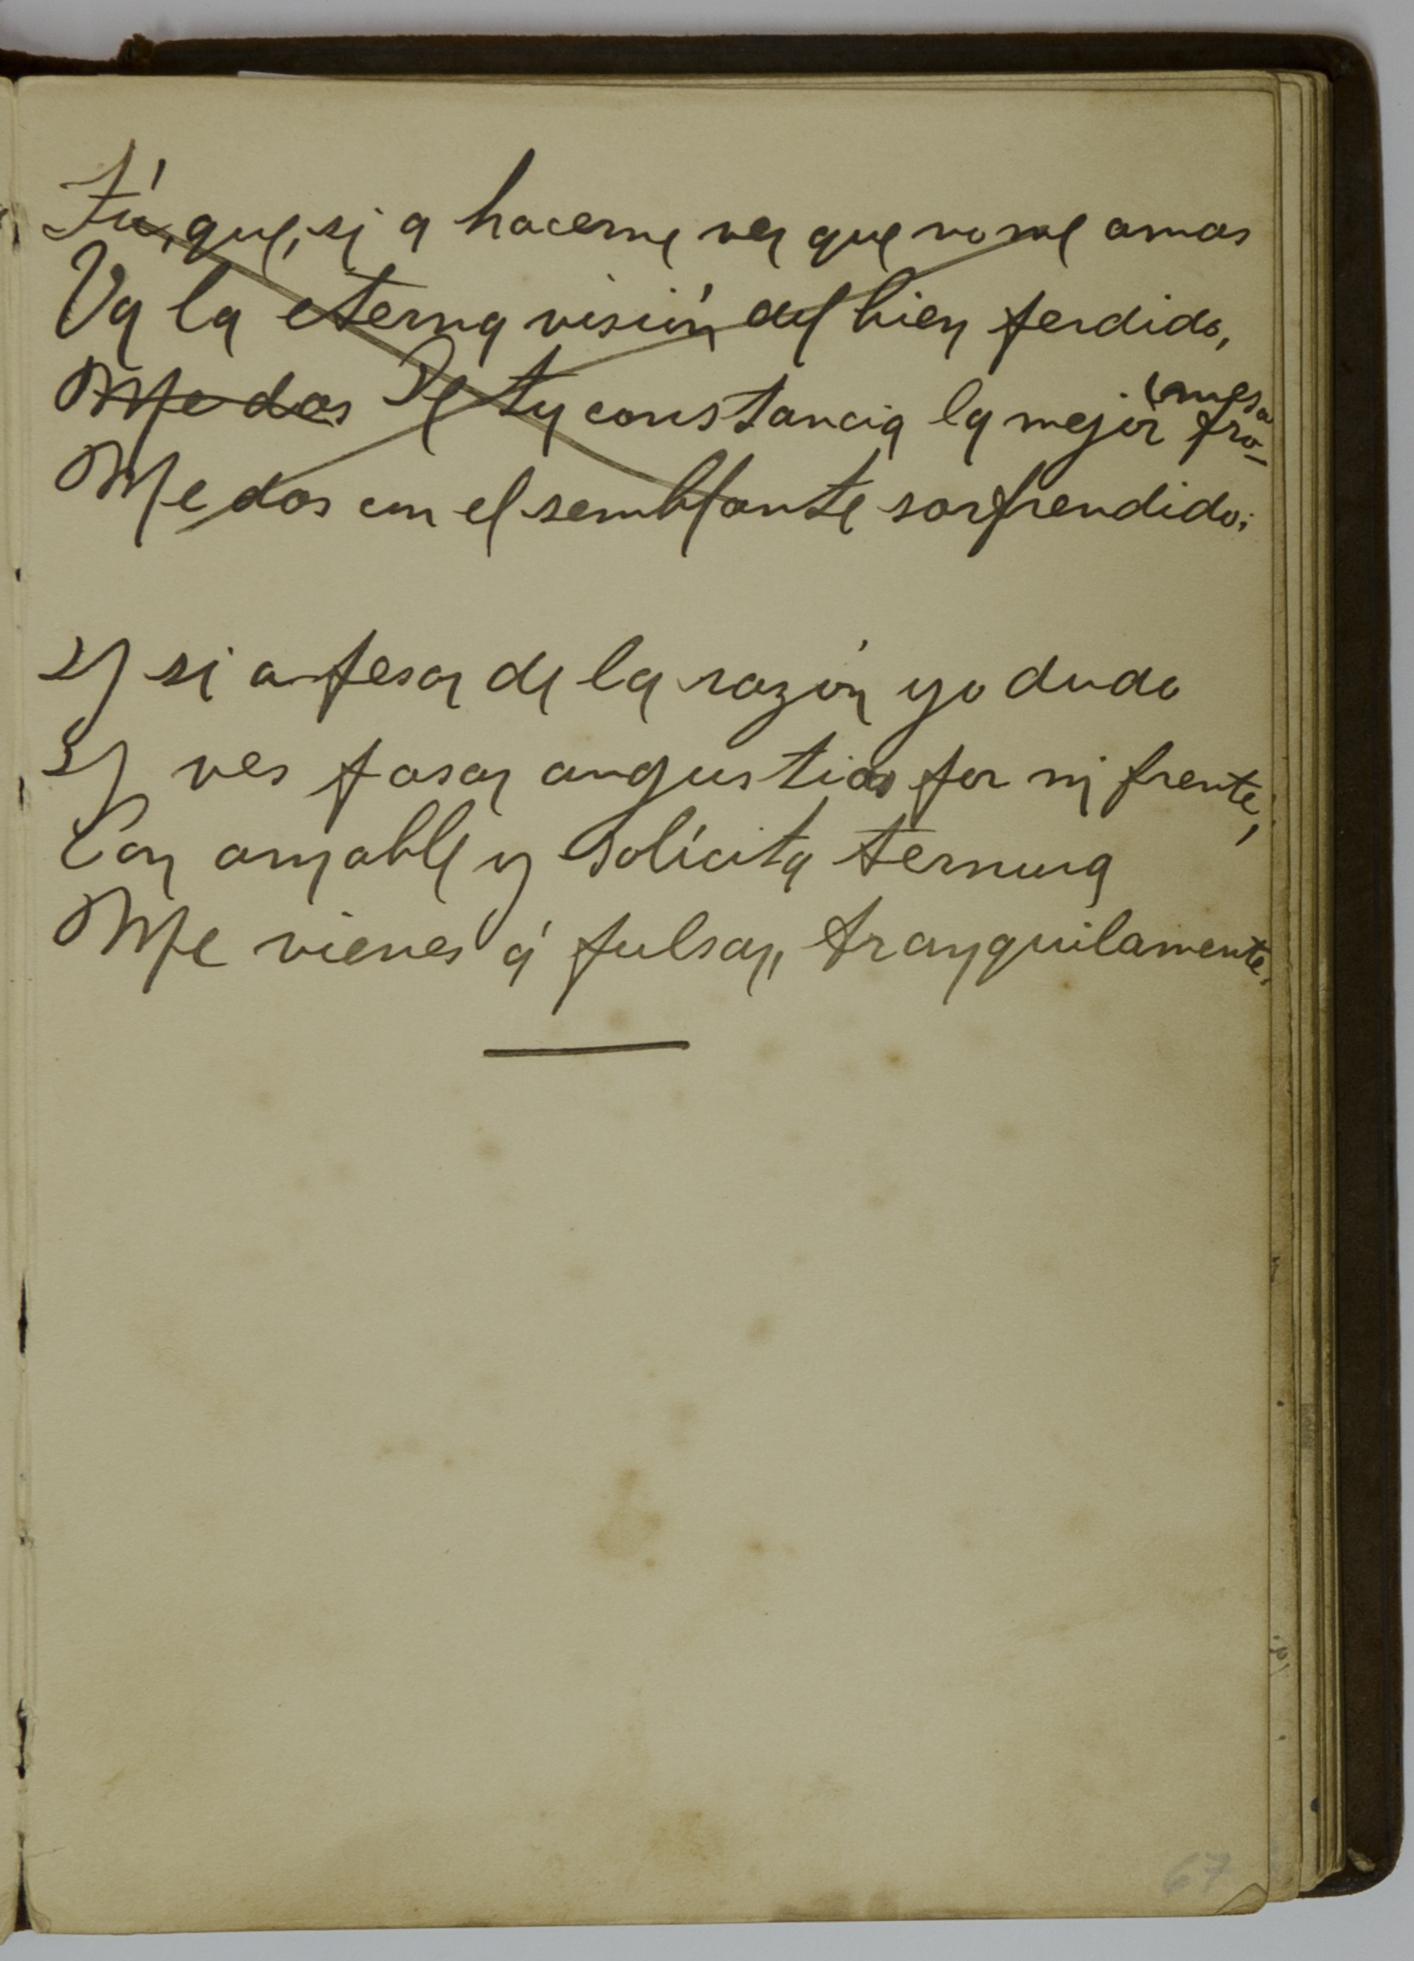 Tú, que, si a hacerme ver que no me amas
Va la eterna visión del bien perdido,
Me das De tu constancia la mejor pro-
(mesa
Me das con el semblante sorprendido;
Y si a pesar de la razón yo dudo
Y ves pasar angustias por mi frente,
Con amable y solícita ternura
Me vienes á pulsar, tranquilamente.
67